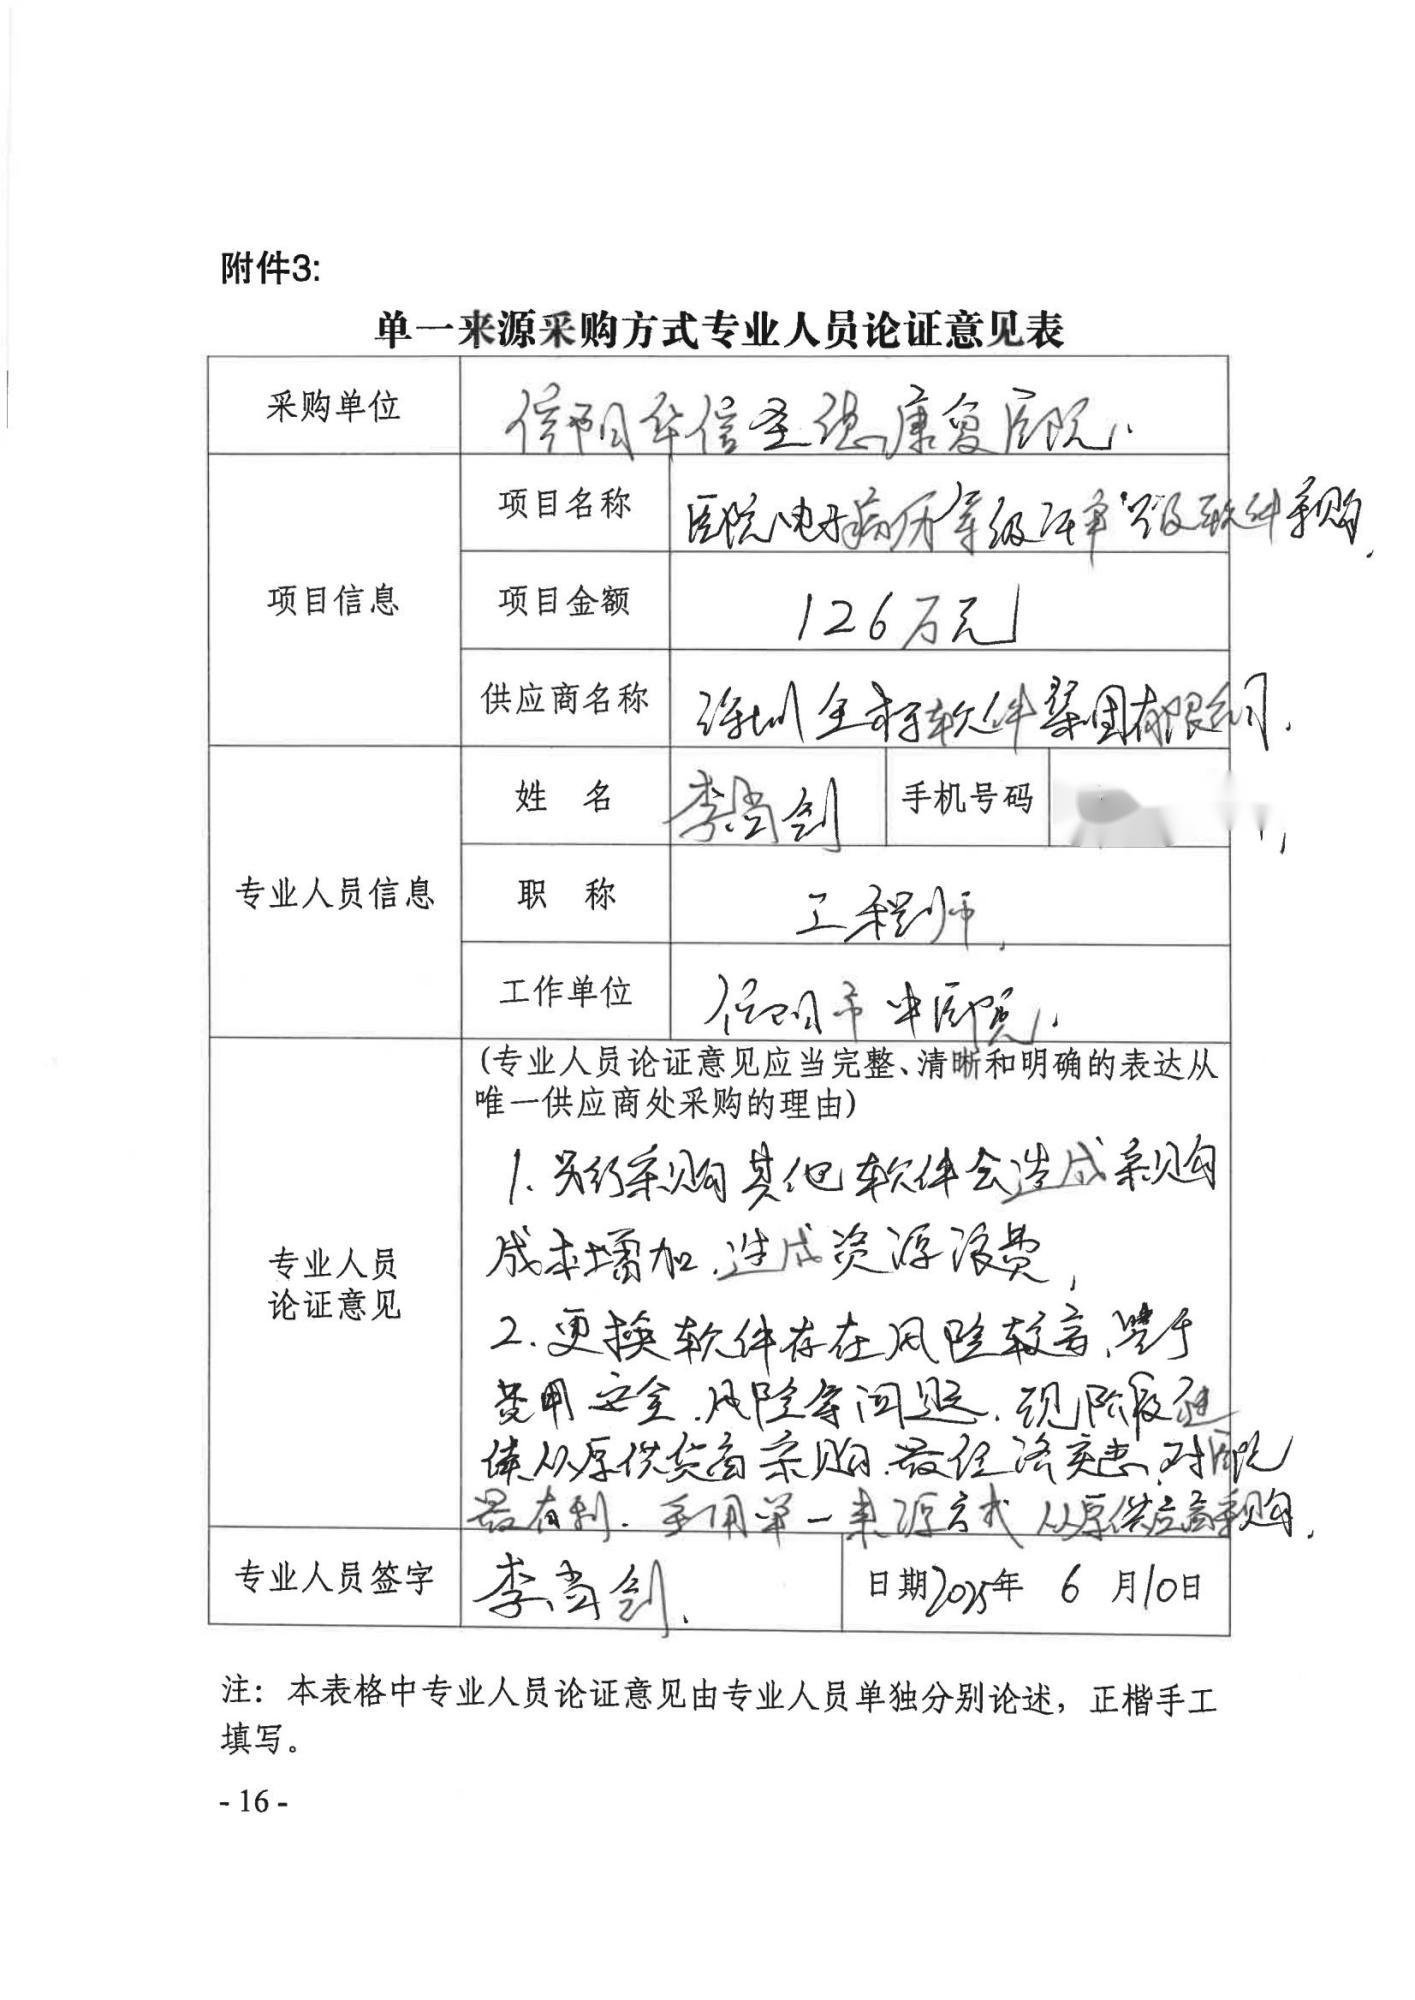 附件3:
单一来源采购方式专业人员论证意见表
采购单位
信阳华信圣德康复医院.
项目信息
项目名称
医院电子病历等级评审 级软件采购.
项目金额
126万元
供应商名称
深圳 软件集团有限公司.
专业人员信息
姓 名
李尚剑
手机号码
职 称
工程师.
工作单位
信阳市中医院.
专业人员
论证意见
(专业人员论证意见应当完整、清晰和明确的表达从
唯一供应商处采购的理由)
1.另行采购其他软件会造成采购
成本增加.造成资源浪费,
2.更换软件存在风险较高.鉴于
费用安全.风险等问题.现阶段
从原供货商采购.最经济实惠.对医院
最有利.采用单一来源方式从原供应商采购.
专业人员签字
李尚剑.
日期2025年 6 月10日
注：本表格中专业人员论证意见由专业人员单独分别论述，正楷手工
填写。
- 16 -